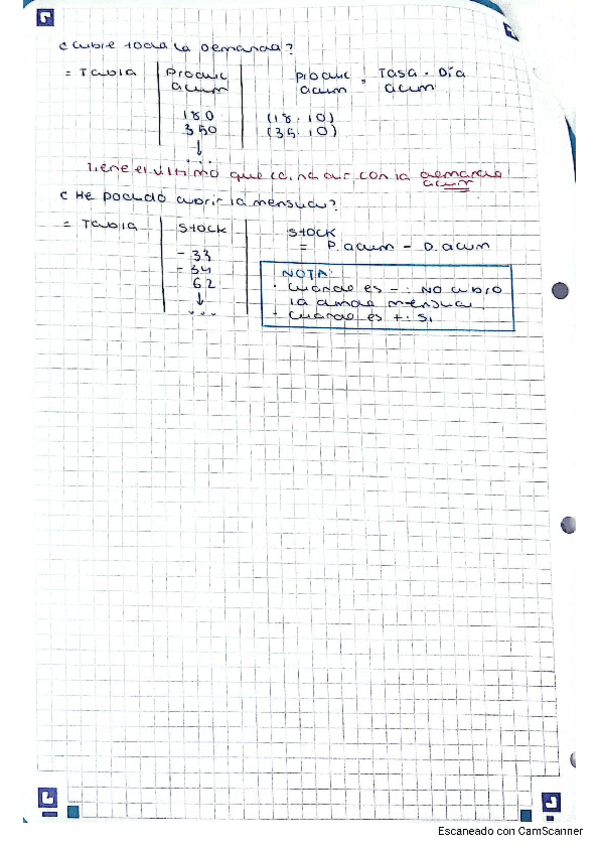 ¿cubre toda la demanda?
= Tabla | Produc acum | produc acum = Tasa · Día acum
180 (18·10)
350 (35·10)
↓
...
Tiene el último que coincidir con la demanda acum
¿He podido cubrir la mensual?
= Tabla | Stock | Stock = P.acum - D.acum
-33
-34
62
↓
...
NOTA:
· Cuando es - : NO cubro
la mensual
· Cuando es + : Si
Escaneado con CamScanner